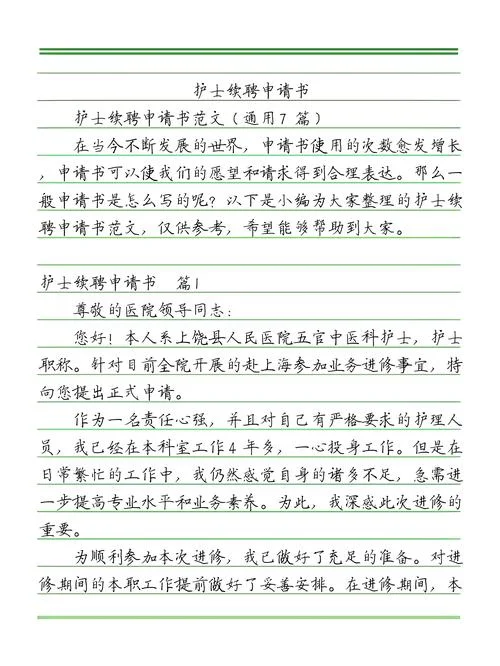 护士续聘申请书
护士续聘申请书范文（通用7 篇）
在当今不断发展的世界，申请书使用的次数愈发增长
，申请书可以使我们的愿望和请求得到合理表达。那么一
般申请书是怎么写的呢？以下是小编为大家整理的护士续
聘申请书范文，仅供参考，希望能够帮助到大家。
护士续聘申请书 篇1
尊敬的医院领导同志：
您好！本人系上饶县人民医院五官中医科护士，护士
职称。针对目前全院开展的赴上海参加业务进修事宜，特
向您提出正式申请。
作为一名责任心强，并且对自己有严格要求的护理人
员，我已经在本科室工作4 年多，一心投身工作。但是在
日常繁忙的工作中，我仍然感觉自身的诸多不足，急需进
一步提高专业水平和业务素养。为此，我深感此次进修的
重要。
为顺利参加本次进修，我已做好了充足的准备。对进
修期间的本职工作提前做好了妥善安排。在进修期间，本